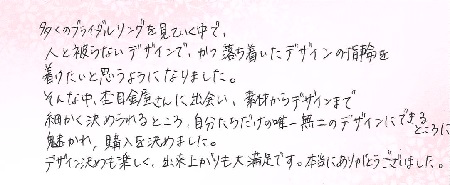 多くのブライダルリングを見ていく中で、
人と被らないデザインで、かつ落ち着いたデザインの指輪を
着けたいと思うようになりました。
そんな中、杢目金屋さんに出会い、素材からデザインまで
細かく決められるところ、自分たちだけの唯一無二のデザインにできるところに
魅かれ、購入を決めました。
デザイン決めも楽しく、出来上がりも大満足です。本当にありがとうございました。